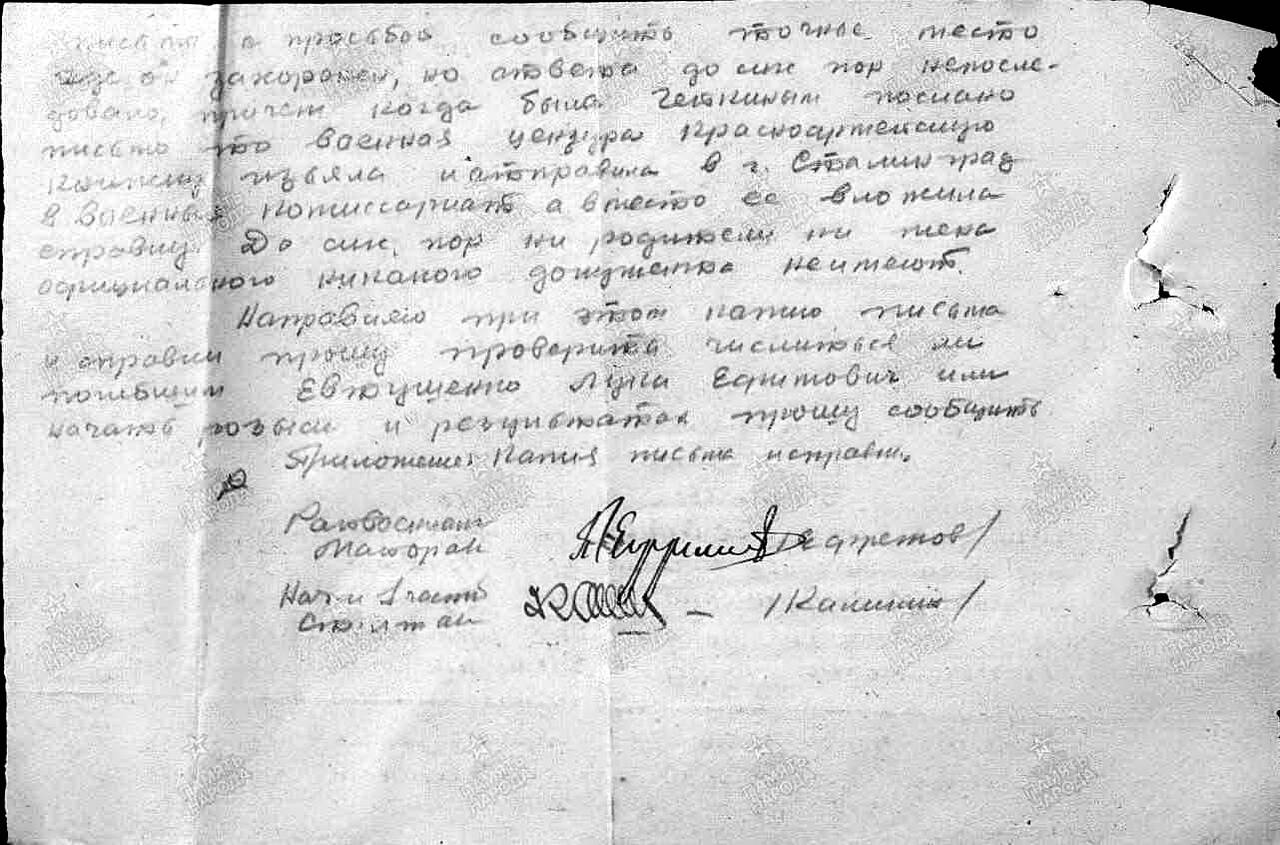 письма с просьбой сообщить точное место
где он захоронен, но ответа до сих пор непосле-
довало, причем когда была Четкиным послано
письмо то военная цензура Красноармейскую
книжку изъяла и отправила в г. Сталинград
в Военный комиссариат а вместо ее вложила
справку. До сих пор ни родители ни жена
официального никакого документа неимеют.
Направляю при этом копию письма
и справки прошу проверить числиться ли
погибшим Евтушенко Лука Ефимович или
начать розыск и результатах прошу сообщить
Приложение: Копия письма и справки.
Райвоенком
Майор ак /Ефремов/
Нач-к 1 части
Ст. л-т ак /Калинин/
ПАМЯТЬ НАРОДА